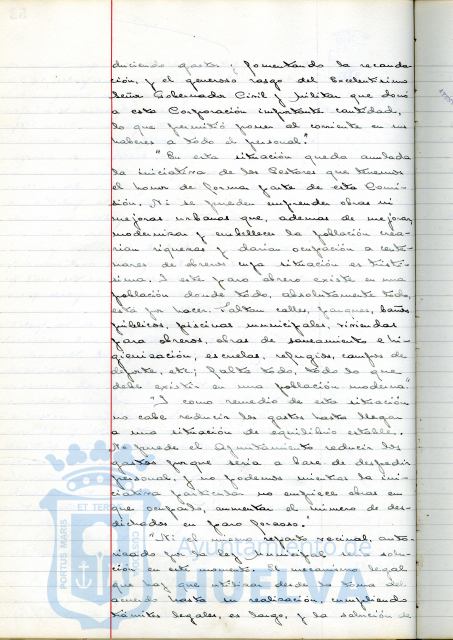 duciendo gastos; fomentando la recauda-
ción, y el generoso rasgo del Excelentísimo
Señor Gobernador Civil y Militar que donó
a esta Corporación importante cantidad,
lo que permitió poner al corriente en sus
haberes a todo el personal."
"En esta situación queda anulada
la iniciativa de los Gestores que tenemos
el honor de formar parte de esta Comi-
sión. Ni se pueden emprender obras ni
mejoras urbanas que, además de mejorar,
modernizar y embellecer la población crea-
rían riquezas y darían ocupación a cente-
nares de obreros cuya situación es tristí-
sima. I este paro obrero existe en una
población donde todo, absolutamente todo,
está por hacer. Faltan calles, parques, baños
públicos, piscinas municipales, viviendas
para obreros, obras de saneamiento e hi-
gienización, escuelas, refugios, campos de
deporte, etc; falta todo, todo lo que
debe existir en una población moderna."
"I como remedio de esta situación
no cabe reducir los gastos hasta llegar
a una situación de equilibrio estable.
No puede el Ayuntamiento reducir los
gastos porque sería a base de despedir
personal, y no podemos mientras la ini-
ciativa particular no empiece obras en
que ocuparlo, aumentar el número de des-
dichados en paro forzoso."
"Ni el mismo reparto vecinal, auto-
rizado por la Ley Municipal es solu-
ción en este momento. El mecanismo legal
que hay que utilizar desde la toma del
acuerdo hasta su realización, cumpliendo
trámites legales, es largo, y la solución de
PORTUS MARIS
ET TERR
CUSTODIA
Ayuntamiento de
HUELVA